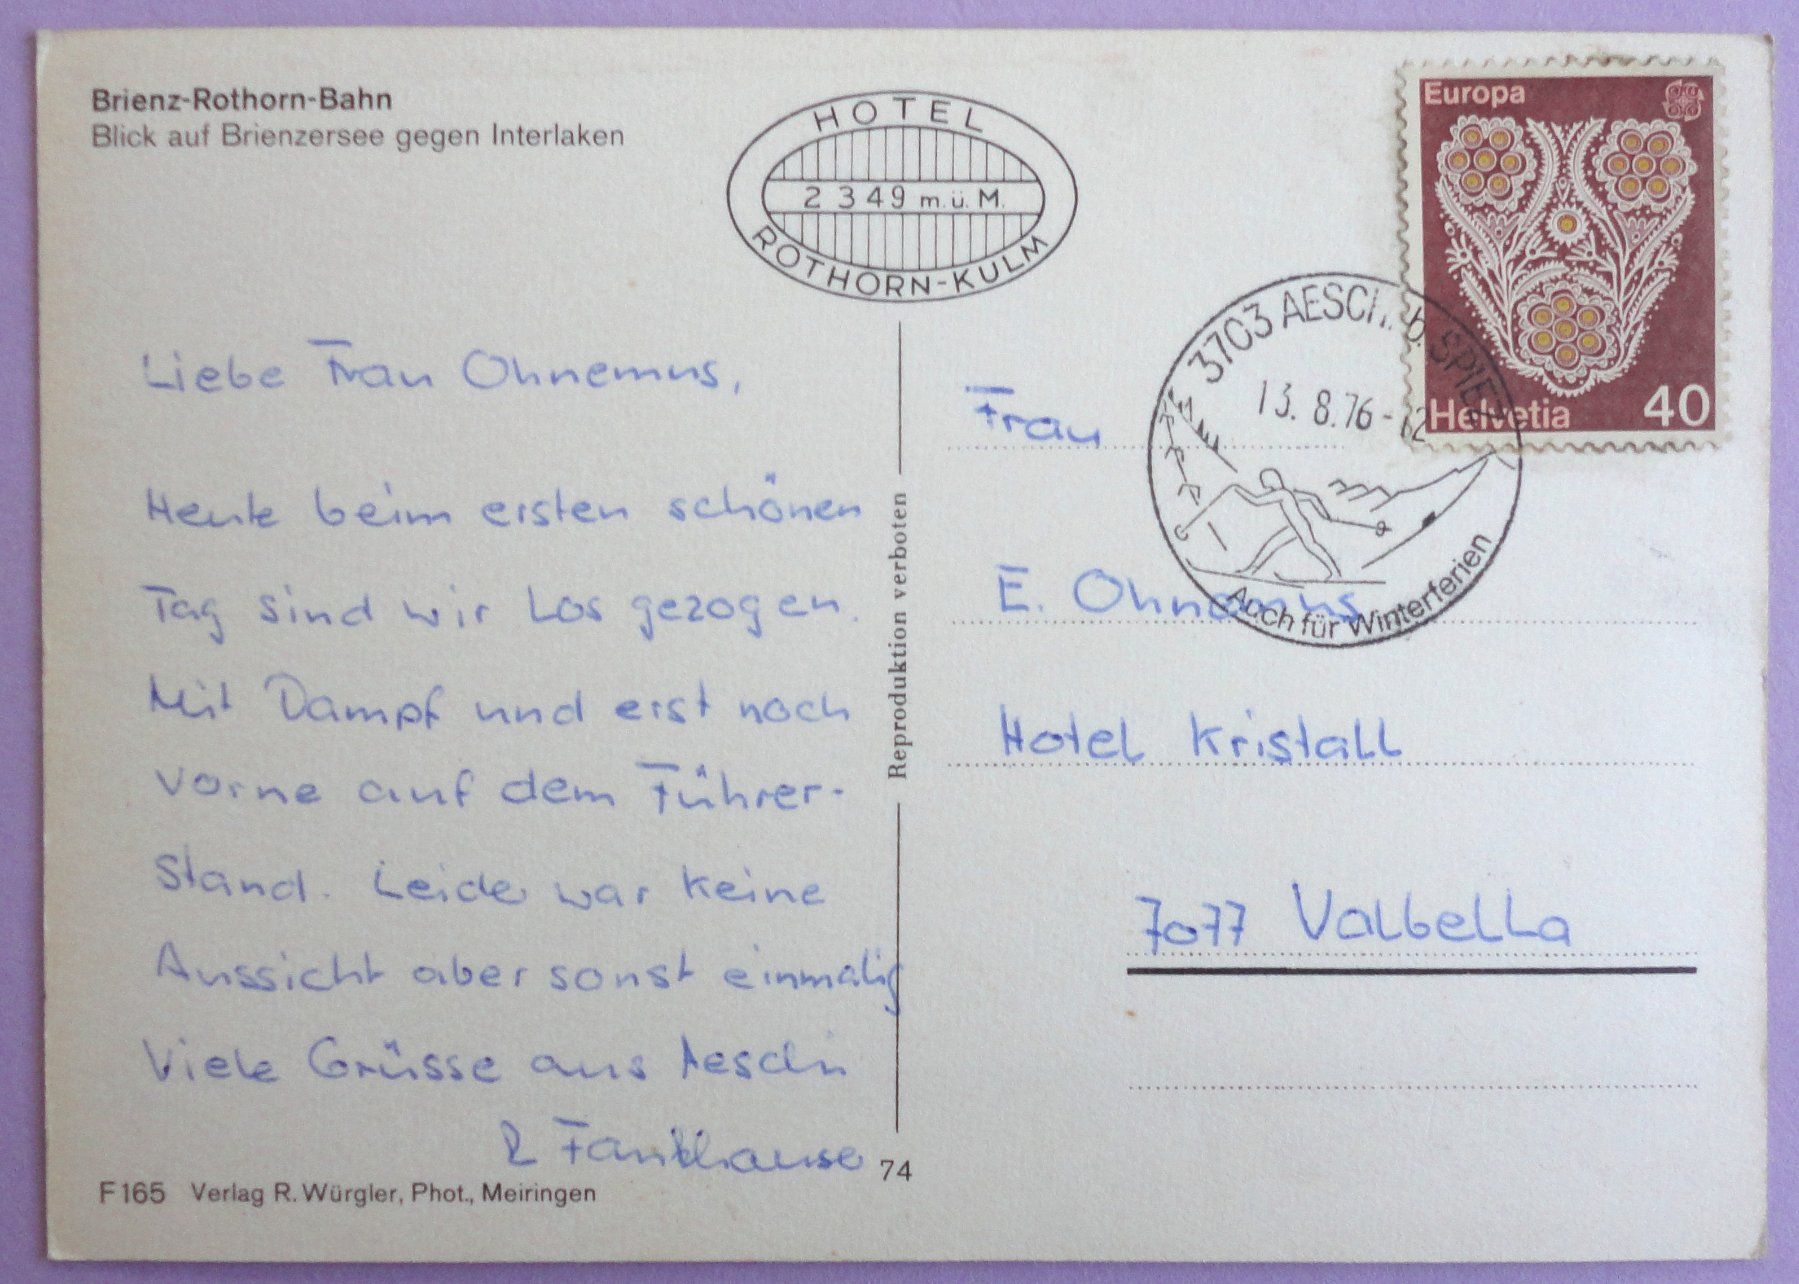 Brienz-Rothorn-Bahn
Blick auf Brienzersee gegen Interlaken
HOTEL
2349 m.ü.M.
ROTHORN-KULM
Europa
Helvetia 40
3703 AESCHI b. SPIEZ
13.8.76-12
Auch für Winterferien
Liebe Frau Ohnemus,
Heute beim ersten schönen
Tag sind wir los gezogen.
Mit Dampf und erst noch
vorne auf dem Führer-
stand. Leider war keine
Aussicht aber sonst einmalig
Viele Grüsse aus Aeschi
R Fankhauser
Reproduktion verboten
74
Frau
E. Ohnemus
Hotel Kristall
7077 Valbella
F165 Verlag R. Würgler, Phot., Meiringen